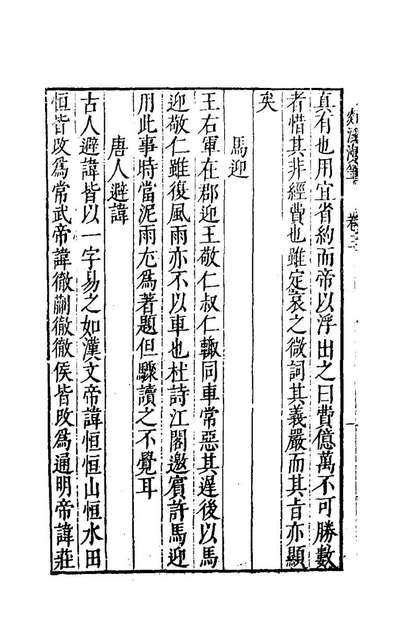 剡溪漫筆　卷三
真有也用宜省約而帝以浮出之曰費億萬不可勝數
者惜其非經費也雖定哀之微詞其義嚴而其旨亦顯
矣
馬迎
王右軍在郡迎王敬仁叔仁輙同車常惡其遲後以馬
迎敬仁雖復風雨亦不以車也杜詩江閣邀賓許馬迎
用此事時當泥雨尤爲著題但驟讀之不覺耳
唐人避諱
古人避諱皆以一字易之如漢文帝諱恒恒山恒水田
恒皆改爲常武帝諱徹蒯徹徹侯皆改爲通明帝諱莊